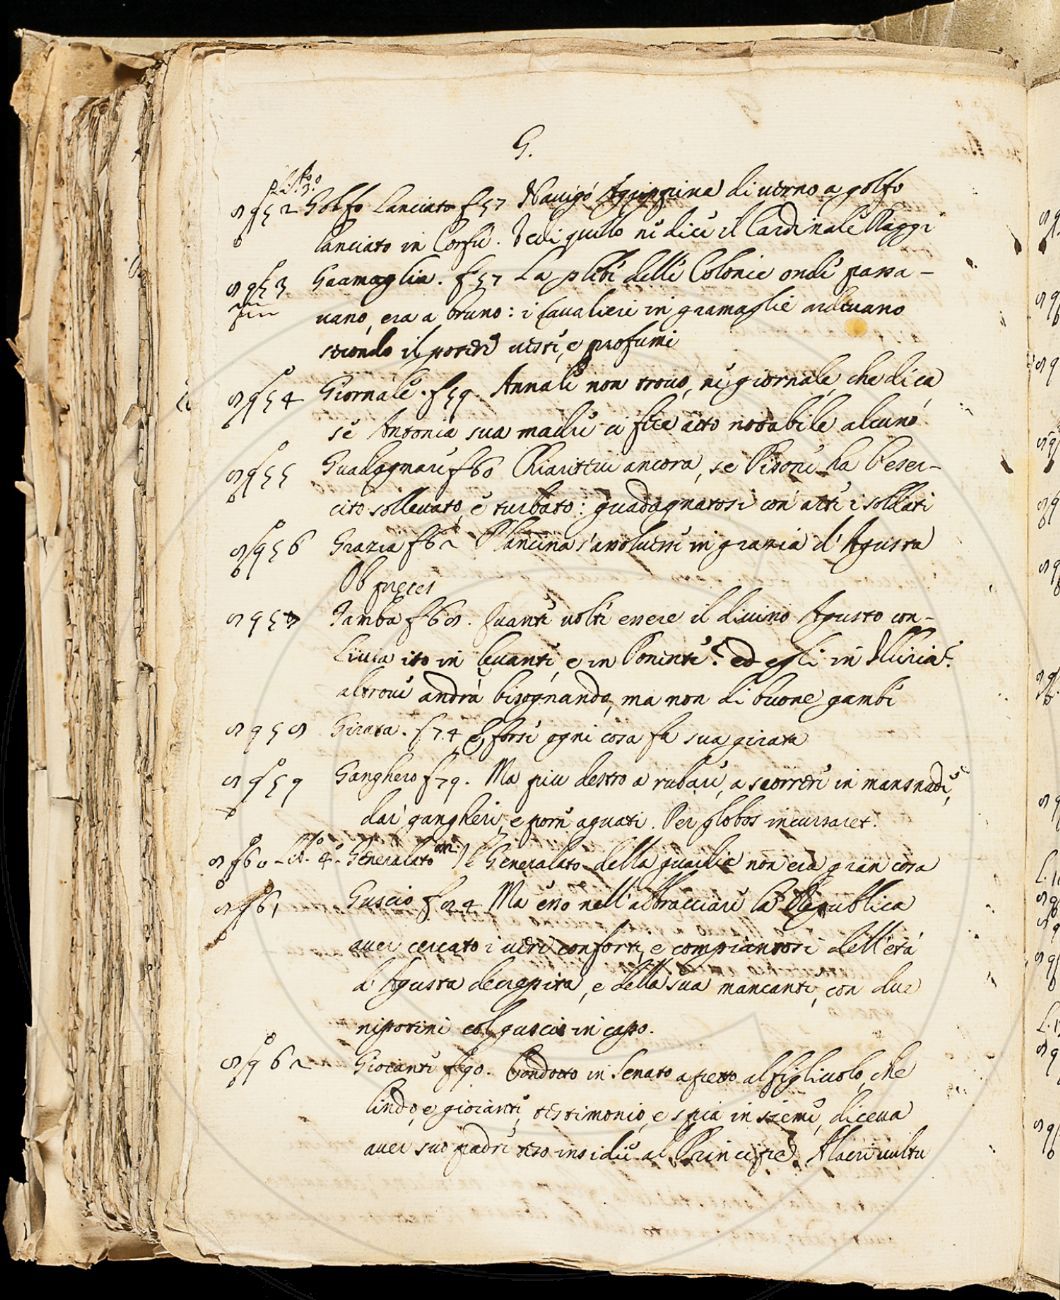 G.
Lib.º 3.º
Golfo Lanciato f 57 Navigò Agrippina di verno a golfo
lanciato in Corfù. Vedi quello ne dice il Cardinale Maggi
Gramaglia. f 57 La plebe delle Colonie onde passa-
vano, era a bruno: i Cavalieri in gramaglie ardevano
secondo il potere vesti, e profumi
Giornale. f 59. Annali non trovo, nè giornale, che dica,
se Antonia sua madre ci fece atto notabile alcuno
Guadagnare f 60 Chiarittevi ancora, se Pisone ha l'eser-
cito sollevato, e turbato: guadagnatosi con arti i soldati
Grazia f 62 Plancina s'avolverà in grazia d'Agusta
Ob preces
Gamba f 68. Quante volte essere il divino Agusto con
Livia ito in Levante, e in Ponente? ed egli in Illiria?
altrove andrà bisognando, ma non di buone gambe
Girata. f 74 E forse ogni cosa fa sua girata
Ganghero f 79. Ma più destro a rubare, a scorrere in masnade,
dar gangheri, e porre aguati. Per globos incursaret.
960 Lib. 4.º Generalato Il Generalato della guardia non era gran cosa
961 Guscio f 84 Ma esso nell'abbracciare la Republica
aver cercato i veri conforti, e compiantosi dell'età
d'Agusta decrepita, e della sua mancante, con due
nipotini col guscio in capo.
962 Giocante f 90. Condotto in Senato a petto al figliuolo, che
lindo, e gioiante, testimonio, e spia insieme, diceva
aver suo padre teso insidie al Principe. Alacri vultu